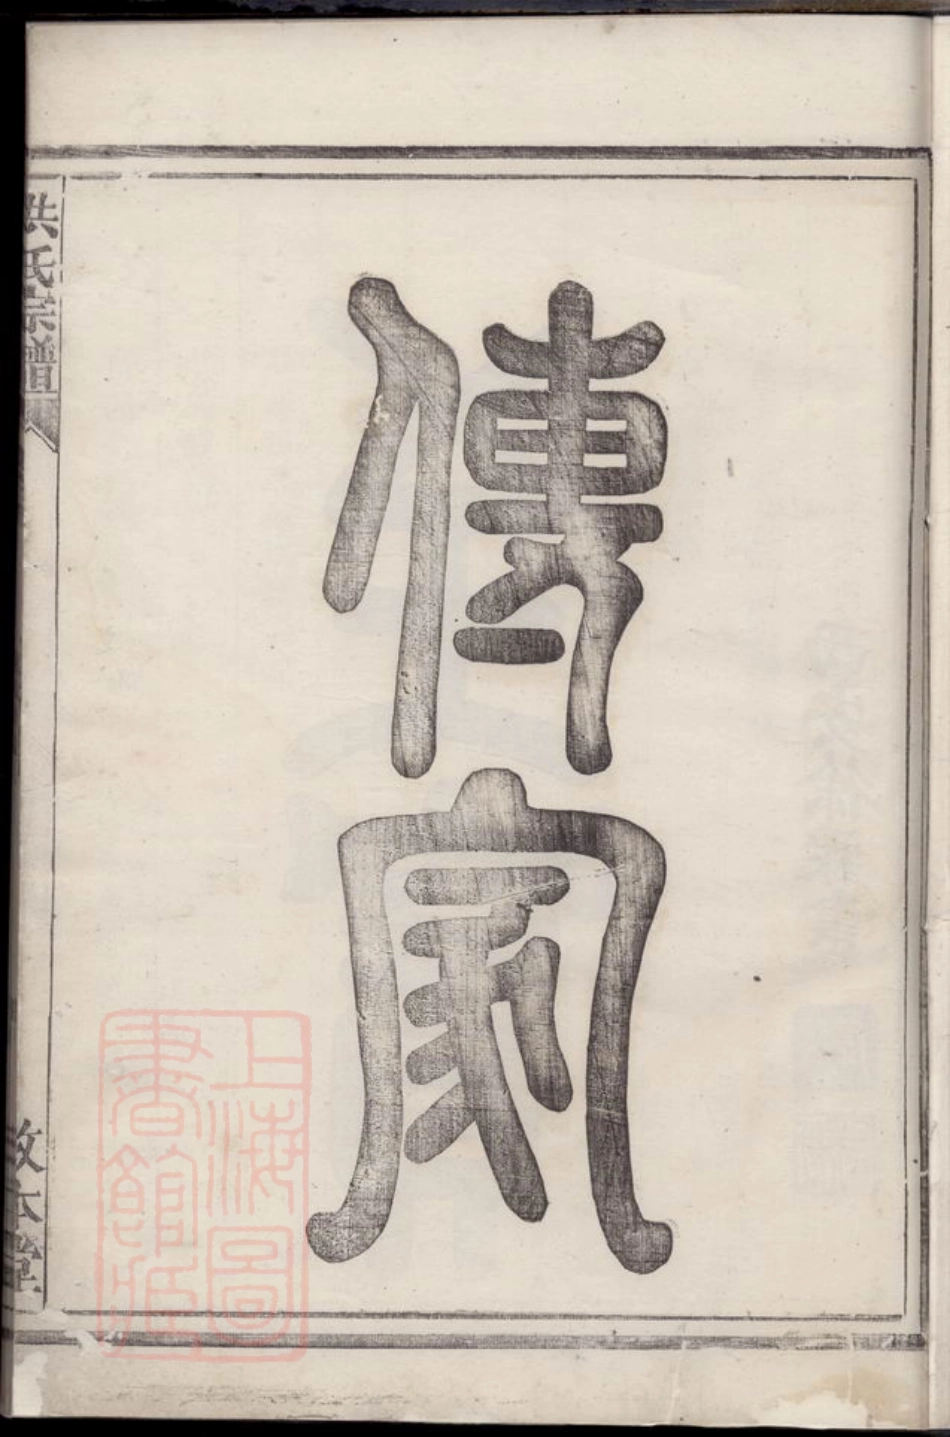 傳家
洪氏宗譜
敦本堂
上海圖
書館藏